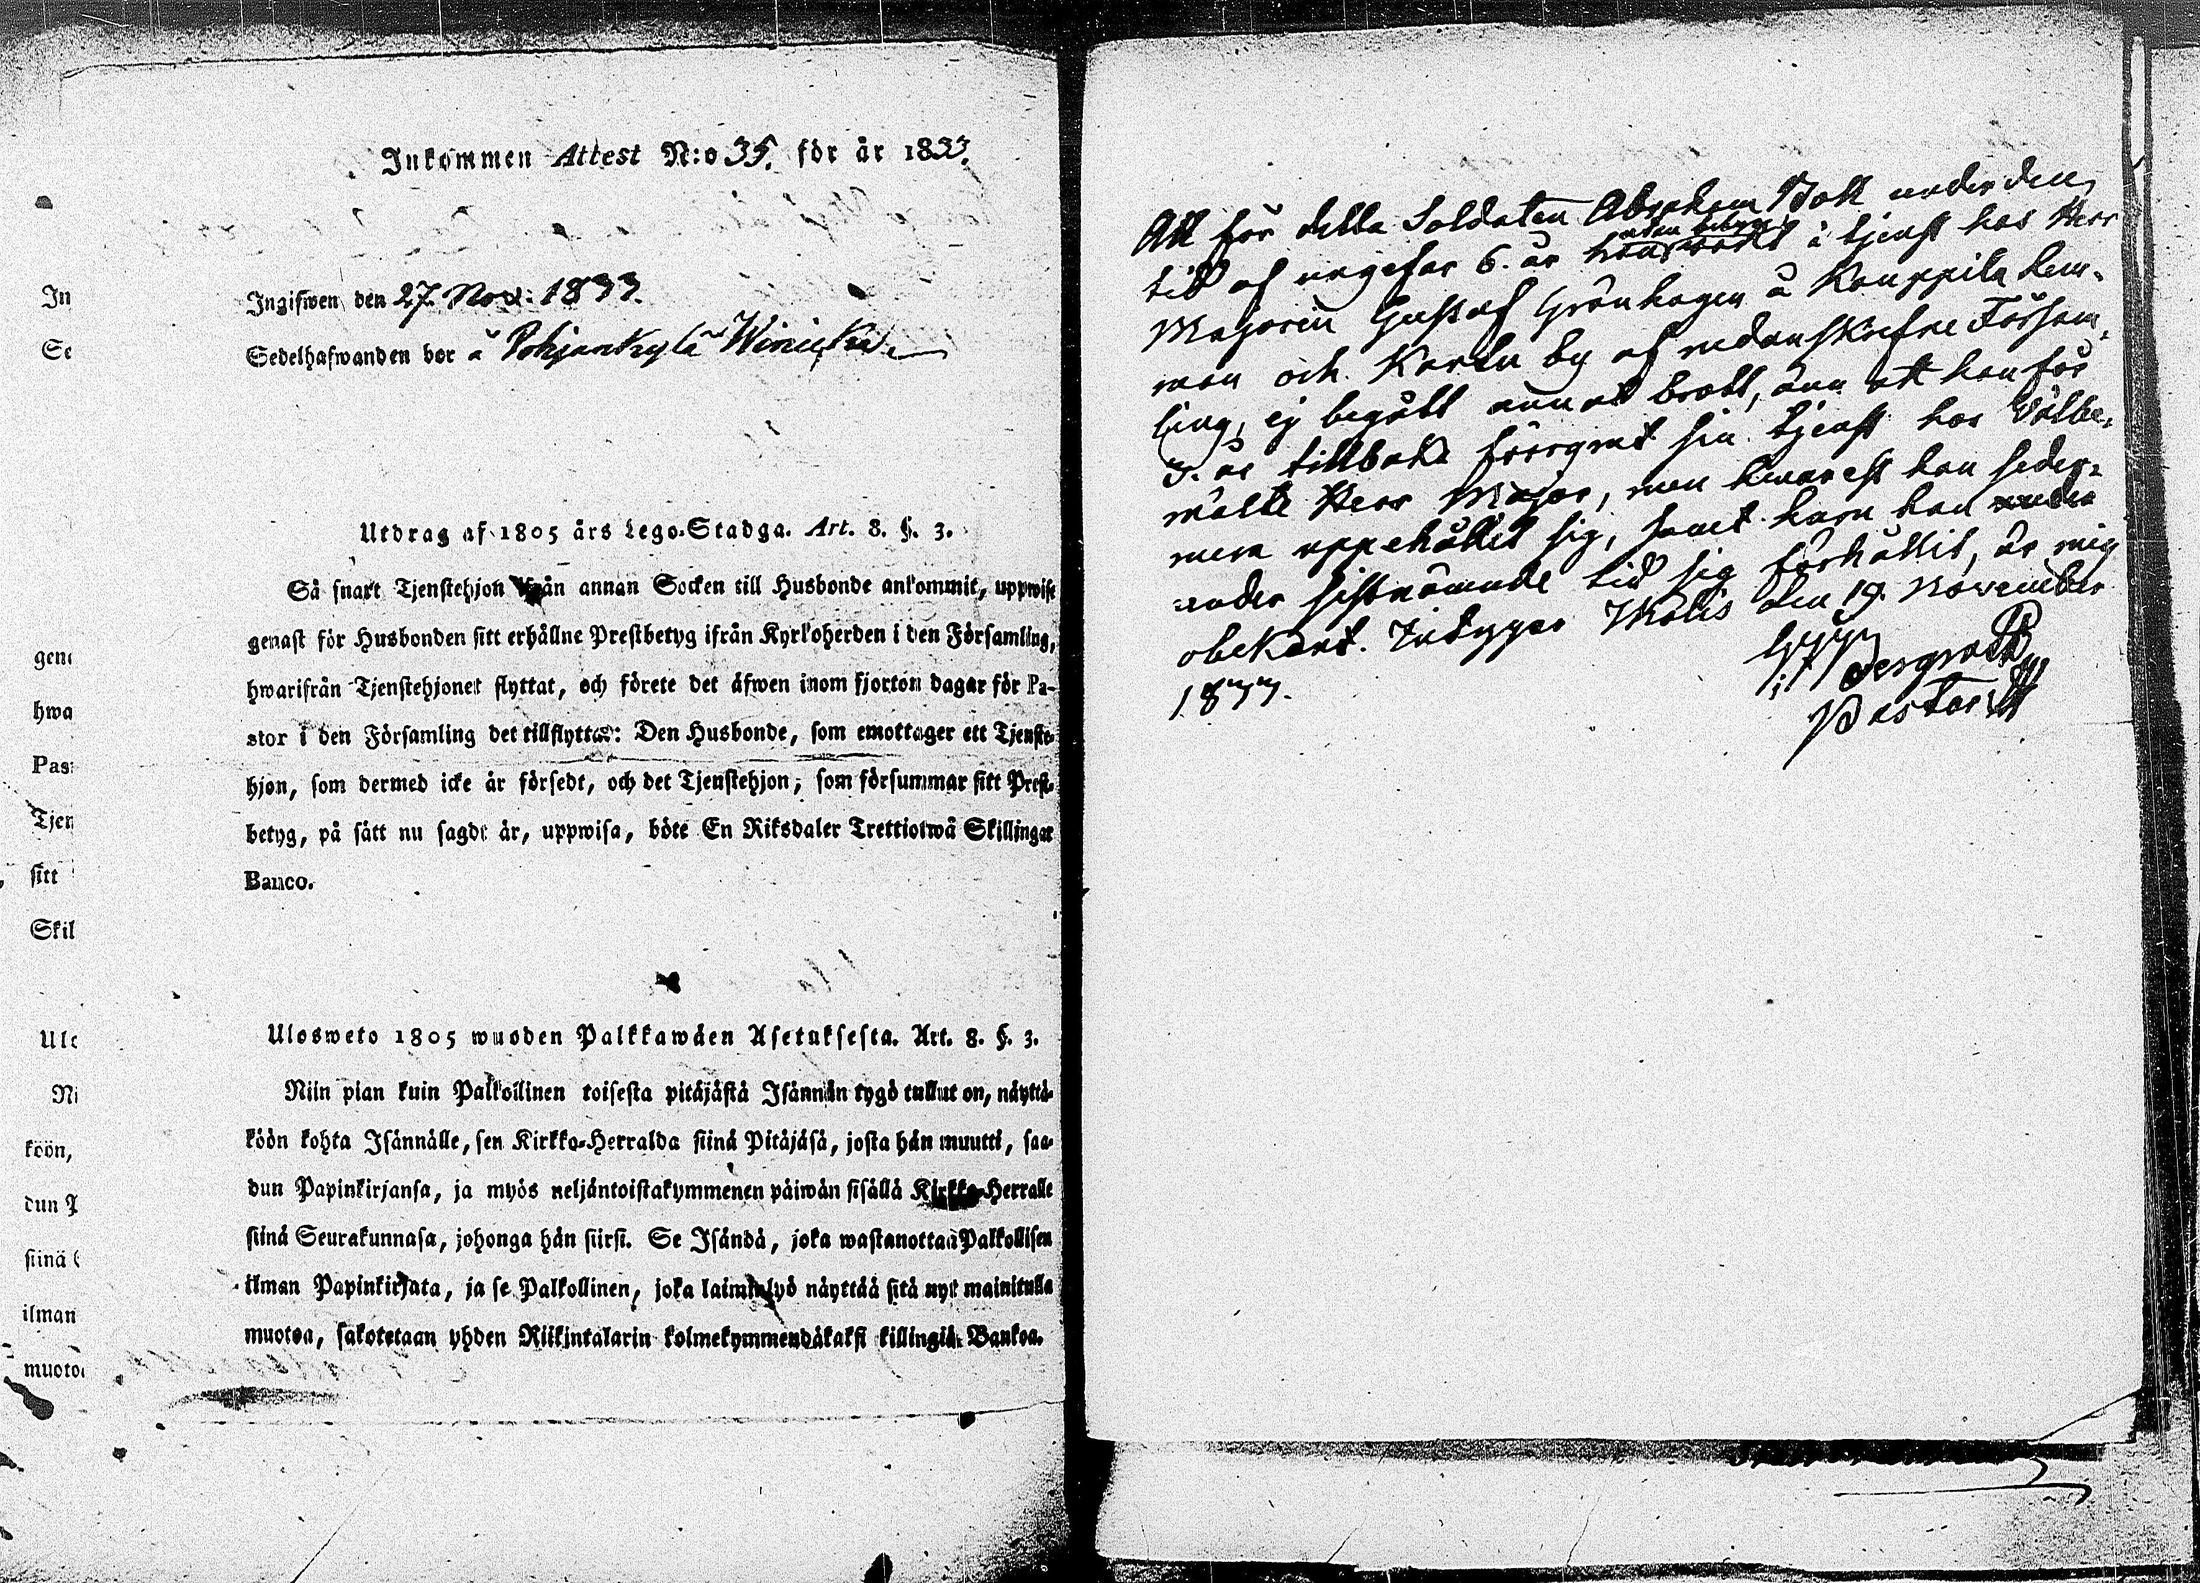 Inkommen Attest N:o 35. för år 1833.
Ingifwen den 27 Nov: 1833.
Sedelhafwanden bor å Pohjankylä
Utdrag af 1805 års Lego-Stadga. Art. 8. §. 3.
Så snart Tjenstehjon ifrån annan Socken till Husbonde ankommit, uppwise
genast för Husbonden sitt erhållne Prestbetyg ifrån Kyrkoherden i den Församling,
hwarifrån Tjenstehjonet flyttat, och förete det äfwen inom fjorton dagar för Pa-
stor i den Församling det tillflyttat: Den Husbonde, som emottager ett Tjenste-
hjon, som dermed icke är försedt, och det Tjenstehjon, som försummar sitt Prest-
betyg, på sätt nu sagdt är, uppwisa, böte En Riksdaler Trettiotwå Skillingar
Banco.
Ulosweto 1805 wuoden Palkkawäen Asetuksesta. Art. 8. §. 3.
Niin pian kuin Palkollinen toisesta pitäjästä Isännän tygö tullut on, näyttä-
köön kohta Isännälle, sen Kirkko-Herralda siinä Pitäjäsä, josta hän muutti, saa-
dun Papinkirjansa, ja myös neljäntoistakymmenen päiwän sisällä Kirkko-Herralle
siinä Seurakunnasa, johonga hän siirsi. Se Isändä, joka wastanottaa Palkollisen
ilman Papinkirjata, ja se Palkollinen, joka laiminlyö näyttää sitä nyt mainitulla
muotoa, sakotetaan yhden Riikintalarin kolmekymmendäkaksi killingiä Bankoa.
In
Se
gena
hwa
Pas
Tjen
sitt
Skil
Ulo
Ni
köön,
dun P
siinä
ilman
muoto
Att för detta Soldaten Abraham under den
tid af ungefär 6. år han utan betyg warit i tjenst hos Herr
Majoren Gustaf Grönhagen å Kauppila hem-
man och Karila by af nedanskrefne Försam-
ling, ej begått annat brott, änn att han för
3. år tillbaka förrymt sin tjenst hos Wälbe-
mälte Herr Major, men hwarest han seder-
mera uppehållit sig, samt huru han
under sistnämnde tid sig förhållit, är mig
obekant. Intygar Mohis den 19. November
1833.
Pastor